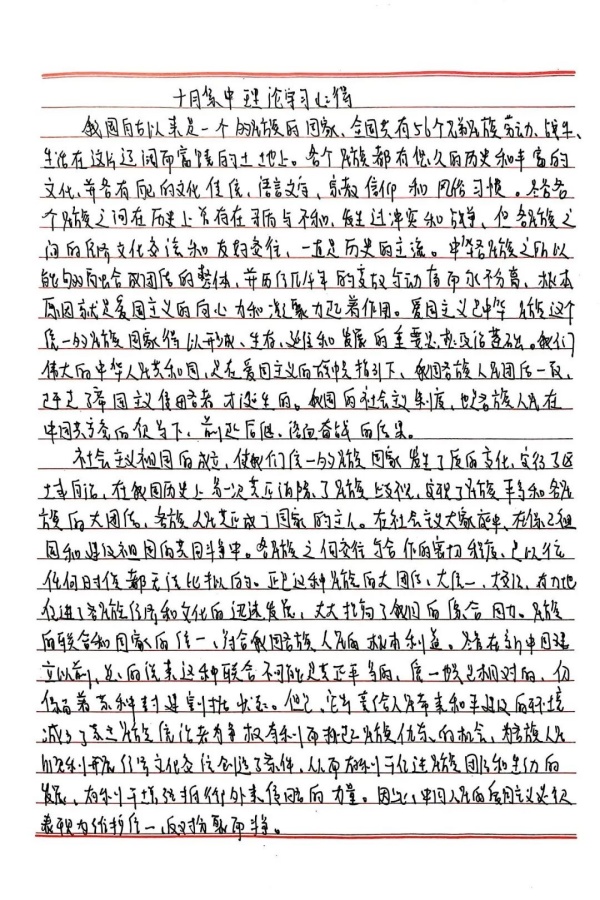 十月集中理论学习心得
我国自古以来是一个多民族的国家、全国共有56个兄弟民族劳动、战斗、
生活在这片辽阔而富饶的土地上。各个民族都有悠久的历史和丰富的
文化,并各有自己的文化传统,语言文字、宗教信仰和风俗习惯。尽管各
个民族之间在历史上曾存在矛盾与不和,发生过冲突和战争,但各民族之
间的经济文化交流和友好交往,一直是历史的主流。中华各民族之所以
能够融合成团结的整体,并历经几千年的变故与动荡而永不分离,根本
原因就是爱国主义的向心力和凝聚力起着作用。爱国主义是中华民族这个
统一的多民族国家得以形成、生存、延续和发展的重要思想政治基础。我们
伟大的中华人民共和国,是在爱国主义的旗帜指引下,我国各族人民团结一致,
赶走了帝国主义侵略者才诞生的。我国的社会主义制度,也是各族人民在
中国共产党的领导下,前赴后继、浴血奋战的结果。
社会主义祖国的成立,使我们统一的多民族国家发生了质的变化,实行了区
域自治,在我国历史上第一次真正消除了民族歧视,实现了民族平等和各民
族的大团结,各族人民真正成了国家的主人。在社会主义大家庭中,在保卫祖
国和建设祖国的共同斗争中。各民族之间交往与合作的密切程度,是以往
任何时候都无法比拟的。正是这种民族的大团结、大统一、大交流,有力地
促进了各民族经济和文化的迅速发展,大大提高了我国的综合国力。民族
的联合和国家的统一,符合我国各族人民的根本利益。尽管在新中国建
立以前,总的说来这种联合不可能是真正平等的,统一也是相对的,仍
保留着某种封建割据状态。但是,它毕竟给人民带来和平建设的环境
减少了某些民族统治者为争权夺利而挑起民族仇杀的机会,为各族人民
顺利开展经济文化交流创造了条件,从而有利于促进民族团结和生产力的
发展,有利于增强抵御外来侵略的力量。因此,中国人民的爱国主义必然
表现为维护统一,反对分裂而斗争。